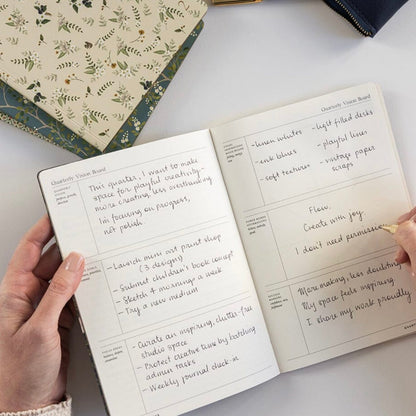 Quarterly Vision Board
This quarter, I want to make
space for playful creativity—
more creating, less overthinking.
I'm focusing on progress,
not polish.
- Launch mini art print shop
(3 designs)
- Submit children's book concept
- Sketch 4 mornings a week
- Try a new medium
- Curate an inspiring, clutter-free
studio space
- Protect creative time by batching
admin tasks
- Weekly journal check-in
Quarterly Vision Board
- linen whites
- ink blues
- soft textures
- light filled desks
- playful lines
- vintage paper
scraps
Flow.
Create with joy.
I don't need permission
More making, less doubting
My space feels inspiring
I share my work proudly